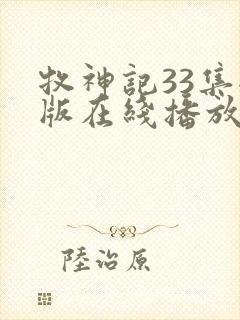 牧神記33集
版在綫播放
陸治原